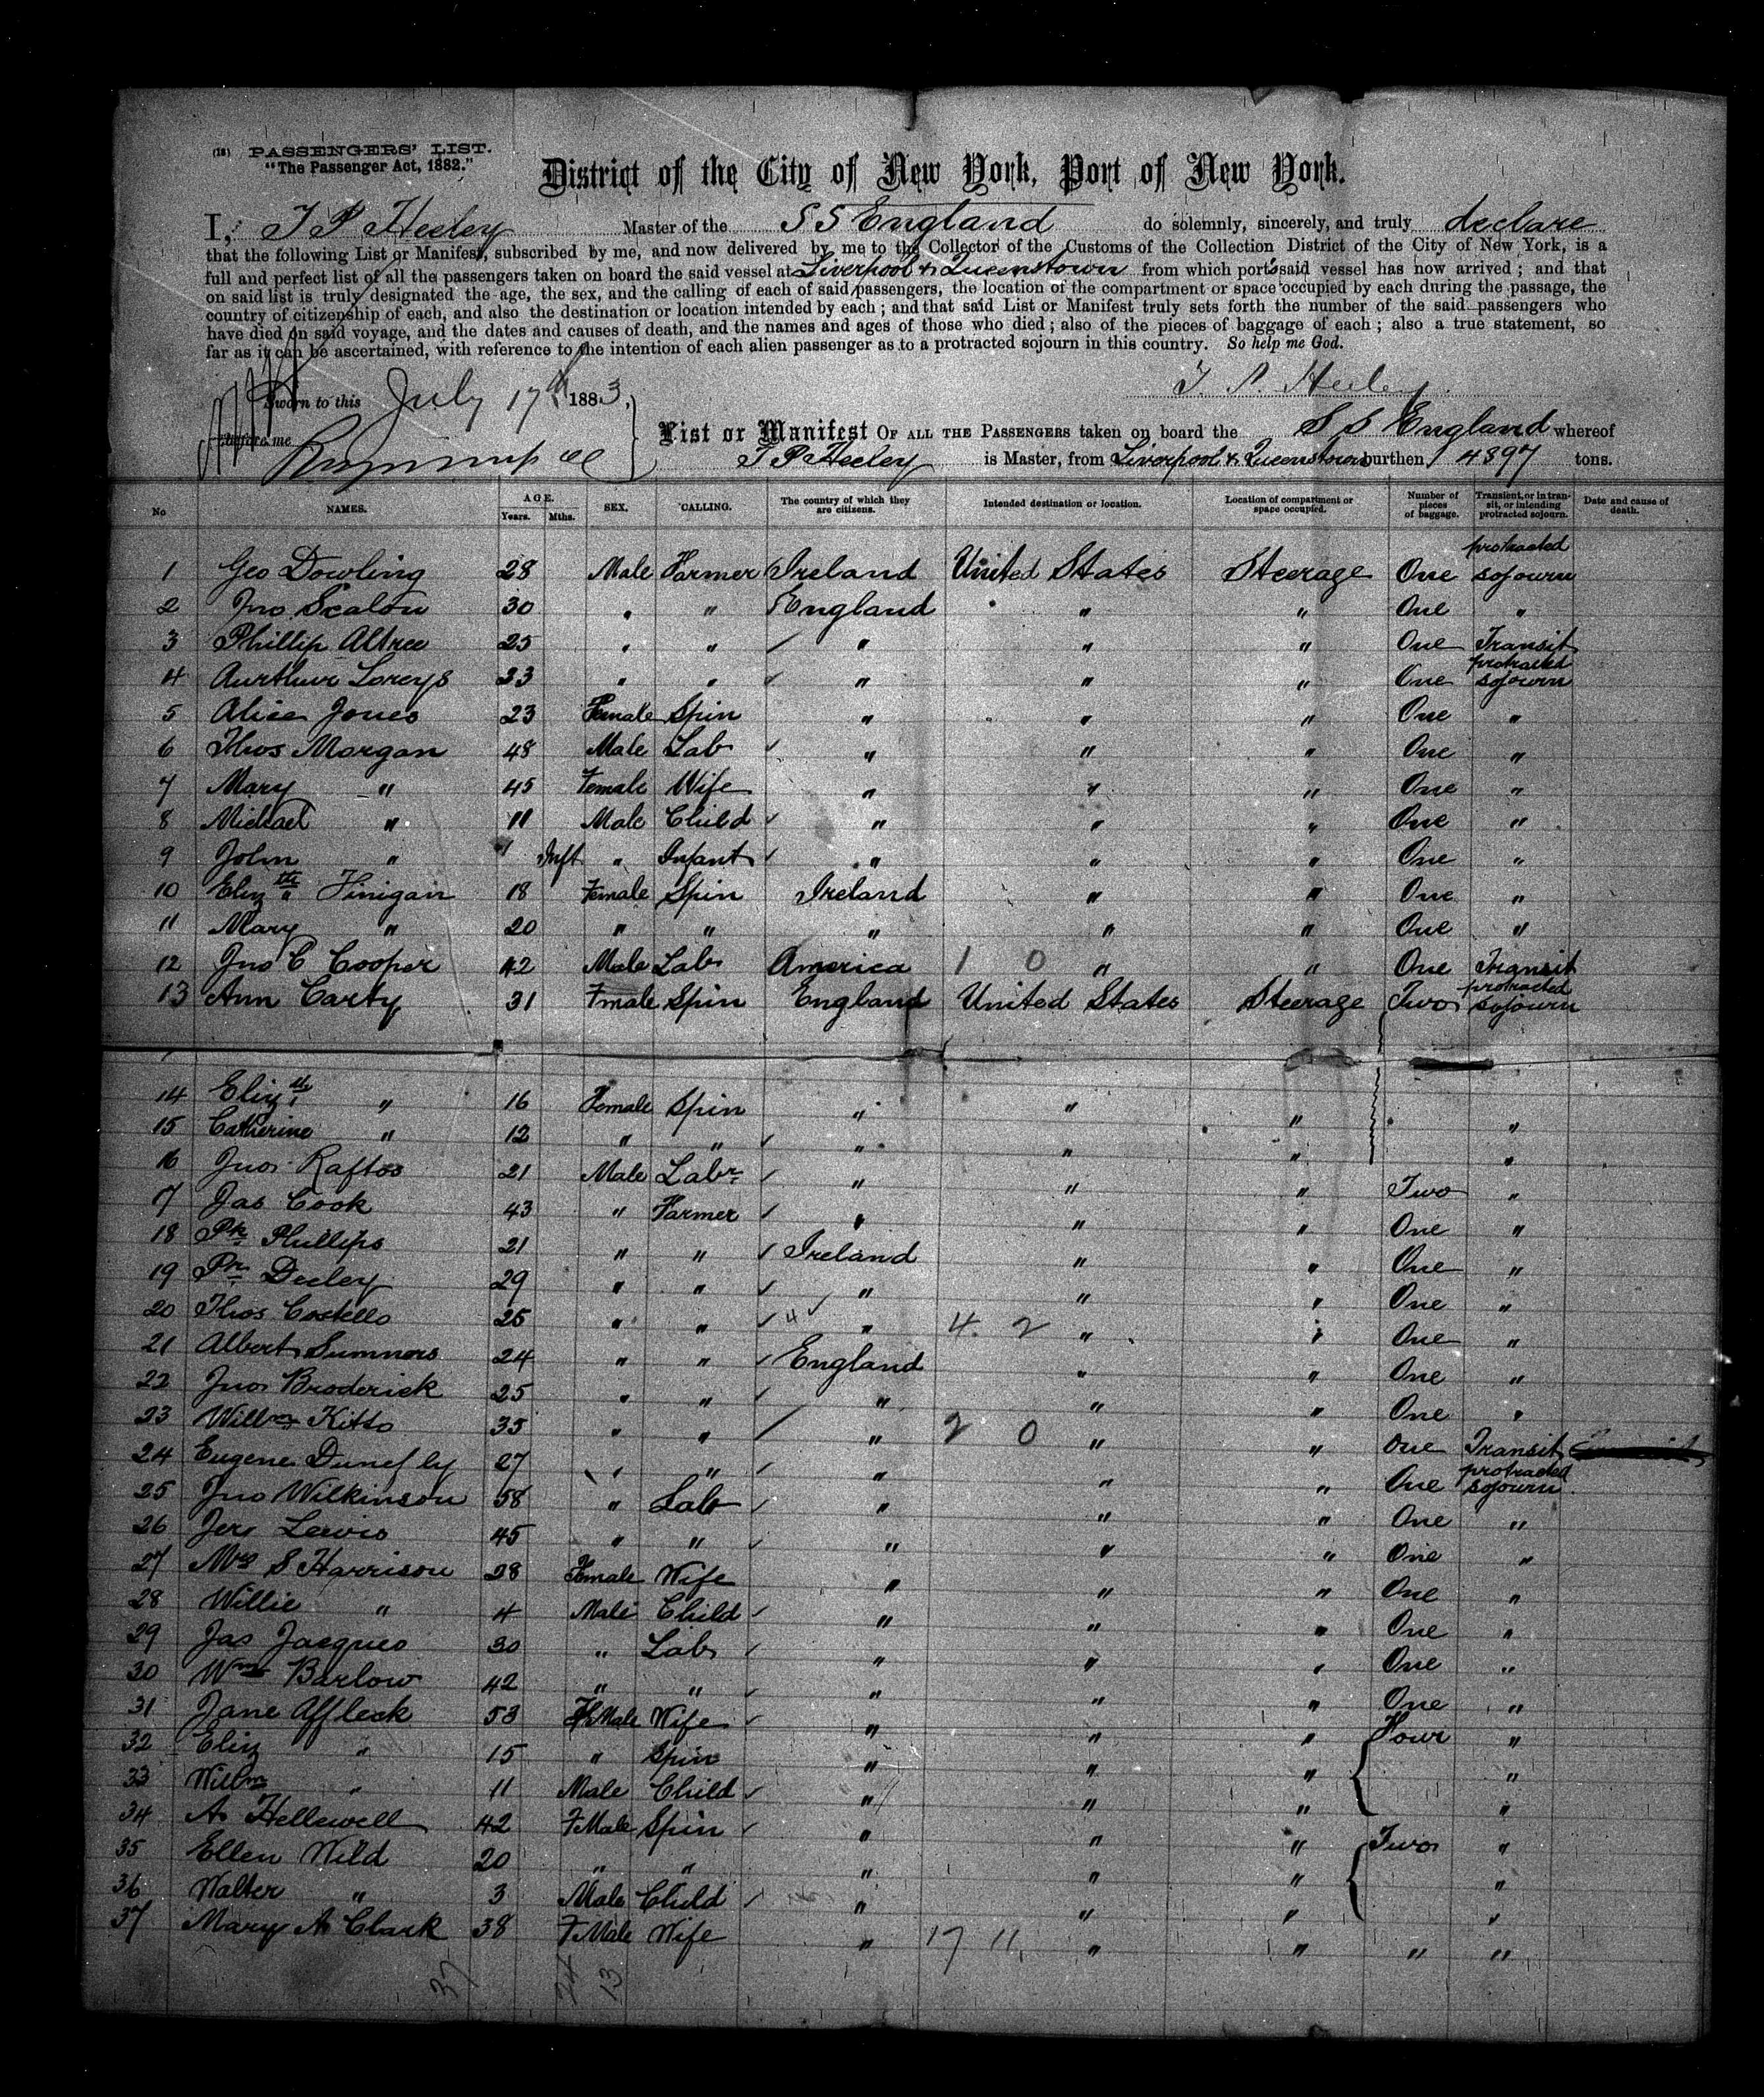 (18) PASSENGERS' LIST.
"The Passenger Act, 1882."
District of the City of New York, Port of New York.
I, T P Heeley Master of the S S England do solemnly, sincerely, and truly declare
that the following List or Manifest, subscribed by me, and now delivered by me to the Collector of the Customs of the Collection District of the City of New York, is a
full and perfect list of all the passengers taken on board the said vessel at Liverpool & Queenstown from which ports said vessel has now arrived; and that
on said list is truly designated the age, the sex, and the calling of each of said passengers, the location of the compartment or space occupied by each during the passage, the
country of citizenship of each, and also the destination or location intended by each; and that said List or Manifest truly sets forth the number of the said passengers who
have died on said voyage, and the dates and causes of death, and the names and ages of those who died; also of the pieces of baggage of each; also a true statement, so
far as it can be ascertained, with reference to the intention of each alien passenger as to a protracted sojourn in this country. So help me God.
Sworn to this July 17th 1883,
T. P. Heeley
before me
List or Manifest OF ALL THE PASSENGERS taken on board the S S England whereof
T P Heeley is Master, from Liverpool & Queenstown burthen 4897 tons.
No NAMES. AGE. Years. Mths. SEX. CALLING. The country of which they are citizens. Intended destination or location. Location of compartment or space occupied. Number of pieces of baggage. Transient, or in transit, or intending protracted sojourn. Date and cause of death.
1 Geo Dowling 28 Male Farmer Ireland United States Steerage One protracted sojourn
2 Jno Scalon 30 " " England " " One "
3 Phillip Altree 25 " " " " " One Transit
4 Aurthur Loreys 23 " " " " " One protracted sojourn
5 Alice Jones 23 Female Spin " " " One "
6 Thos Morgan 48 Male Lab " " " One "
7 Mary " 45 Female Wife " " " One "
8 Michael " 11 Male Child " " " One "
9 John " 1 Inft " Infant " " " One "
10 Elizth Finigan 18 Female Spin Ireland " " One "
11 Mary " 20 " " " " " One "
12 Jno C Cooper 42 Male Lab America 1 0 " " One Transit
13 Ann Carty 31 Fmale Spin England United States Steerage Two protracted sojourn
14 Elizth " 16 Female Spin " " " "
15 Catherine " 12 " " " " " "
16 Jno Raftos 21 Male Labr " " " Two "
17 Jas Cook 43 " Farmer " " " One "
18 Pk Phillips 21 " " Ireland " " One "
19 Pk Deeley 29 " " " " " One "
20 Thos Costello 25 " " 4 " 4 2 " " One "
21 Albert Sumners 24 " " England " " One "
22 Jno Broderick 25 " " " " " One "
23 Willm Kitto 35 " " " 2 0 " " One Transit
24 Eugene Dunefly 27 " " " " " One protracted sojourn
25 Jno Wilkinson 58 " Lab " " " One "
26 Jer Lewis 45 " " " " " One "
27 Mrs S Harrison 28 Female Wife " " " One "
28 Willie " 4 Male Child " " " One "
29 Jas Jacques 30 " Lab " " " One "
30 Wm Barlow 42 " " " " " One "
31 Jane Affleck 53 FMale Wife " " " Four "
32 Eliz " 15 " Spin " " " "
33 Willm " 11 Male Child " " " "
34 A Hellewell 42 FMale Spin " " " Two "
35 Ellen Wild 20 " " " " " "
36 Walter " 3 Male Child " " " "
37 Mary A Clark 38 FMale Wife " 17 11 " " " "
37 24 13